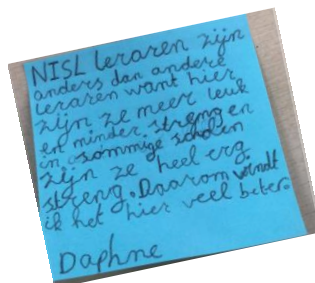 NISL leraren zijn
anders dan andere
leraren want hier
zijn ze meer leuk
en minder streng en
in sommige scholen
zijn ze heel erg
streng. Daarom vindt
ik het hier veel beter.
Daphne